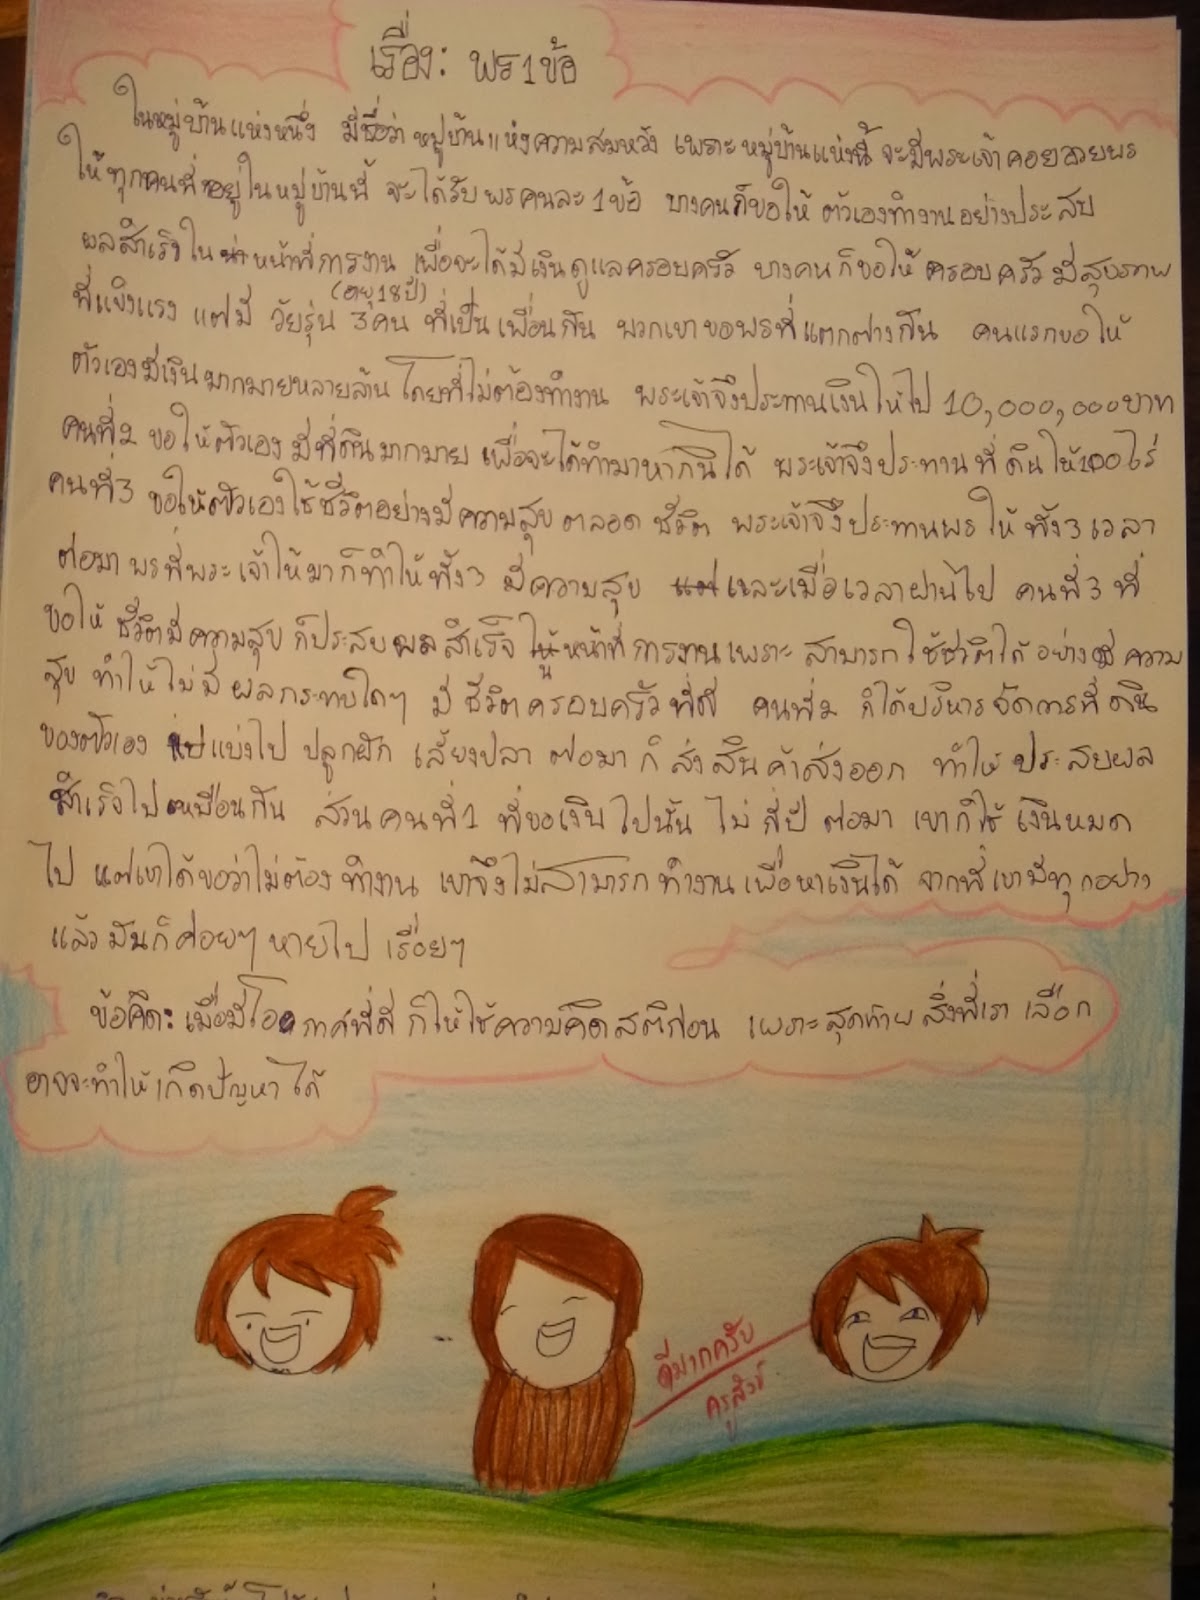 เรื่อง: พร 1 ข้อ
ในหมู่บ้านแห่งหนึ่ง มีชื่อว่า หมู่บ้านแห่งความสมหวัง เพราะหมู่บ้านแห่งนี้ จะมีพระเจ้าคอยอวยพร
ให้ทุกคนที่อยู่ในหมู่บ้านนี้ จะได้รับพรคนละ 1 ข้อ บางคนก็ขอให้ ตัวเองทำงานอย่างประสบ
ผลสำเร็จใน หน้าที่การงาน เพื่อจะได้มีเงินดูแลครอบครัว บางคนก็ขอให้ ครอบครัวมีสุขภาพ
(อายุ 18 ปี)
ที่แข็งแรง แต่มี วัยรุ่น 3 คน ที่เป็นเพื่อนกัน พวกเขาขอพรที่แตกต่างกัน คนแรกขอให้
ตัวเองมีเงินมากมายหลายล้าน โดยที่ไม่ต้องทำงาน พระเจ้าจึงประทานเงินให้ไป 10,000,000 บาท
คนที่ 2 ขอให้ตัวเอง มีที่ดินมากมาย เพื่อจะได้ทำมาหากินได้ พระเจ้าจึงประทานที่ดินให้ 100 ไร่
คนที่ 3 ขอให้ตัวเองใช้ชีวิตอย่างมีความสุข ตลอด ชีวิต พระเจ้าจึงประทานพรให้ทั้ง 3 เวลา
ต่อมา พรที่พระเจ้าให้มาก็ทำให้ทั้ง 3 มีความสุข แต่ และเมื่อเวลาผ่านไป คนที่ 3 ที่
ขอให้ ชีวิตมีความสุข ก็ประสบผลสำเร็จ หน้าที่การงานเพราะ สามารถใช้ชีวิตได้อย่างมีความ
สุข ทำให้ไม่มีผลกระทบใดๆ มีชีวิตครอบครัวที่ดี คนที่ 2 ก็ได้บริหารจัดการที่ดิน
ของตัวเอง แบ่งไป ปลูกผัก เลี้ยงปลา ต่อมา ก็ส่งสินค้าส่งออก ทำให้ประสบผล
สำเร็จไปเหมือนกัน ส่วนคนที่ 1 ที่ขอเงินไปนั้น ไม่กี่ปี ต่อมา เขาก็ใช้เงินหมด
ไป แต่เขาได้ขอว่าไม่ต้องทำงาน เขาจึงไม่สามารถทำงานเพื่อหาเงินได้ จากที่เขามีทุกอย่าง
แล้วมันก็ค่อยๆ หายไปเรื่อยๆ
ข้อคิด: เมื่อมีโอกาศที่ดี ก็ให้ใช้ความคิดสติก่อน เพราะสุดท้ายสิ่งที่เราเลือก
อาจจะทำให้เกิดปัญหาได้
ดีมากครับ